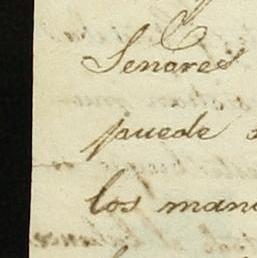 Senores
puede
los man